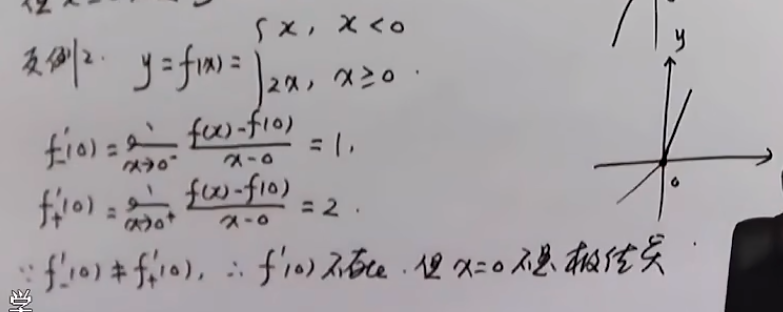 反例2. y=f(x)={x, x<0
2x, x≥0.
y
f'₋(0)=lim x→0⁻ (f(x)-f(0))/(x-0) = 1,
f'₊(0)=lim x→0⁺ (f(x)-f(0))/(x-0) = 2.
0
∵ f'₋(0)≠f'₊(0), ∴ f'(0)不存在. 但x=0不是极值点
学